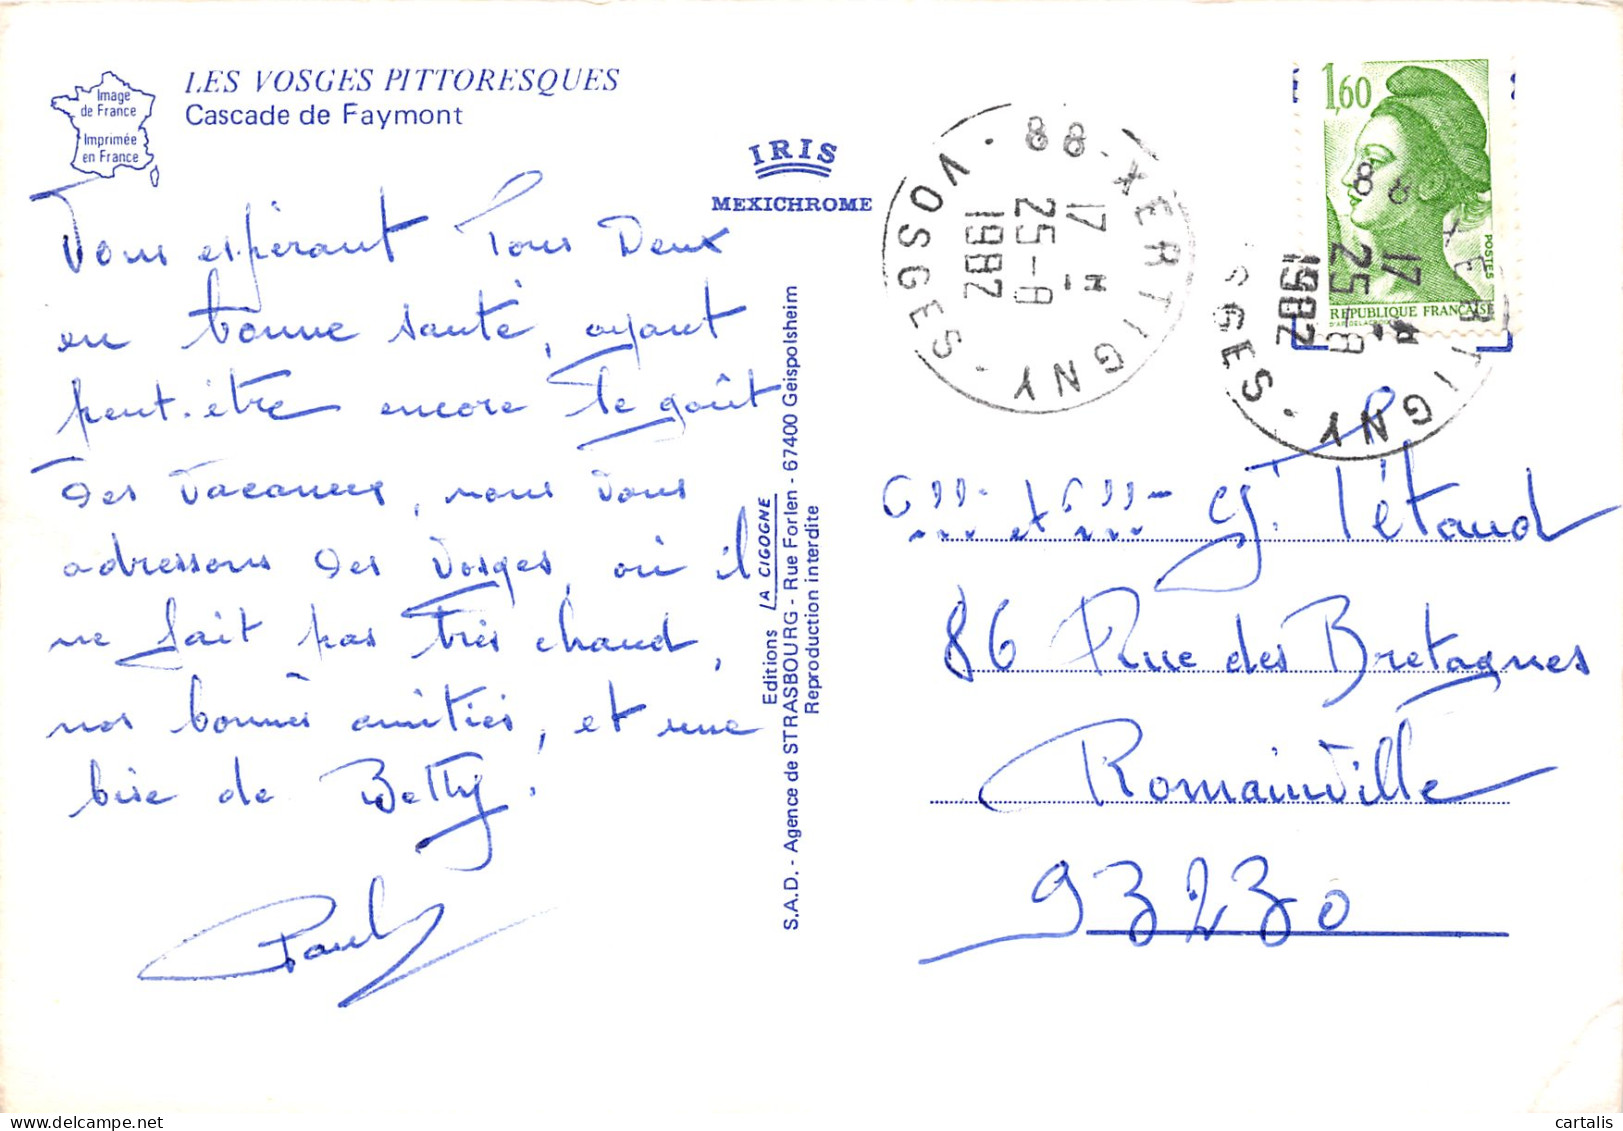 LES VOSGES PITTORESQUES
Cascade de Faymont
Image
de France
Imprimée
en France
IRIS
MEXICHROME
Vous espérant Tous Deux
en bonne santé, ayant
peut-être encore le goût
Des Vacances, nous Vous
adressons Des Vosges, où il
ne fait pas Très chaud,
nos bonnes amitiés, et une
bise de Betty.
Paul
Editions LA CIGOGNE
S.A.D. - Agence de STRASBOURG - Rue Forlen - 67400 Geispolsheim
Reproduction interdite
88 - XERTIGNY - VOSGES
17 H
25-8
1982
1,60
POSTES
REPUBLIQUE FRANÇAISE
88
17 H
25-8
1982
et G. Tétaud
86 Rue des Bretagnes
Romainville
93230
cartalis